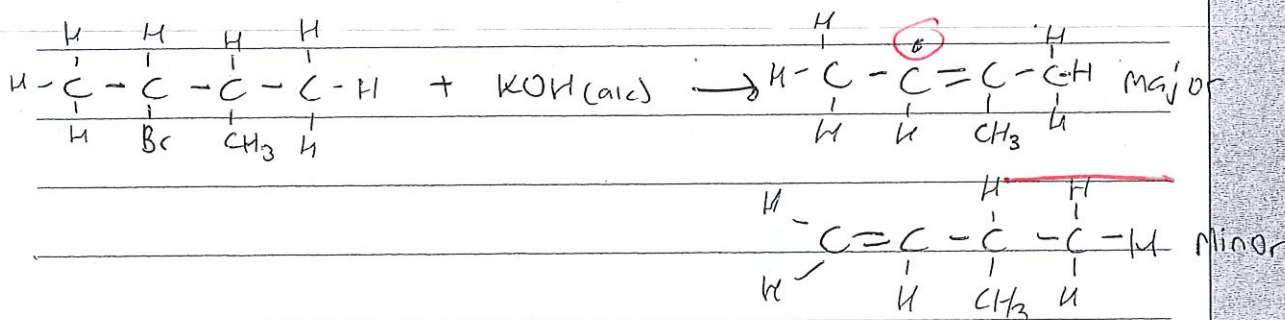 H H H H H H
H - C - C - C - C - H + KOH (alc) → H - C - C = C - C - H Major
H Br CH3 H H H CH3 H
H H H
C = C - C - C - H Minor
H H CH3 H